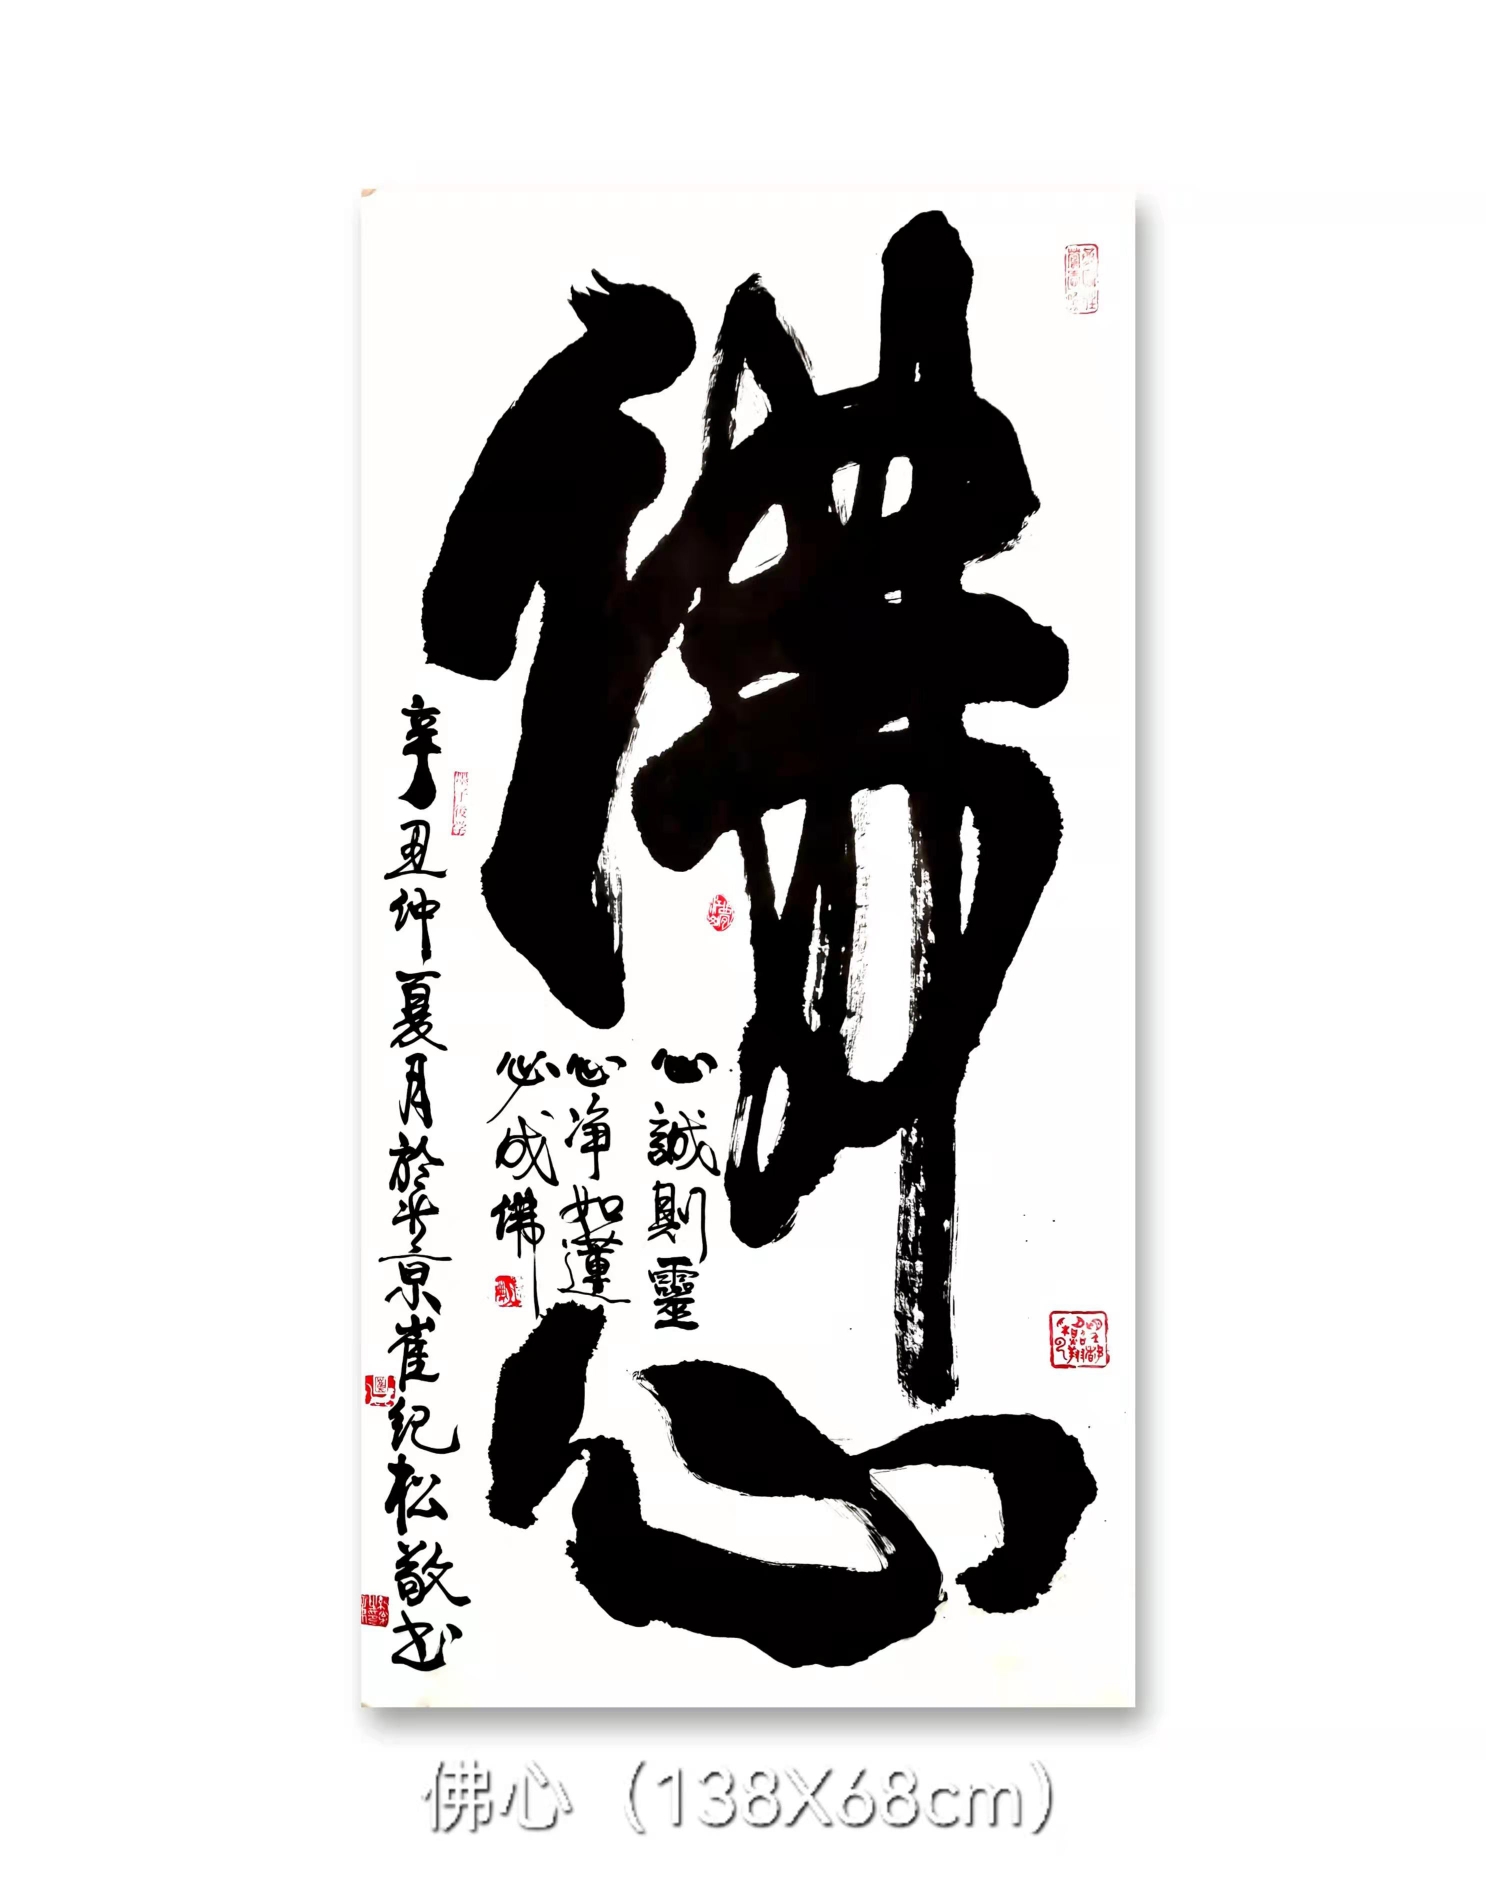 佛心
心誠則靈
心净如蓮
必成佛
辛丑仲夏月於北京崔纪松敬书
佛心（138X68cm）